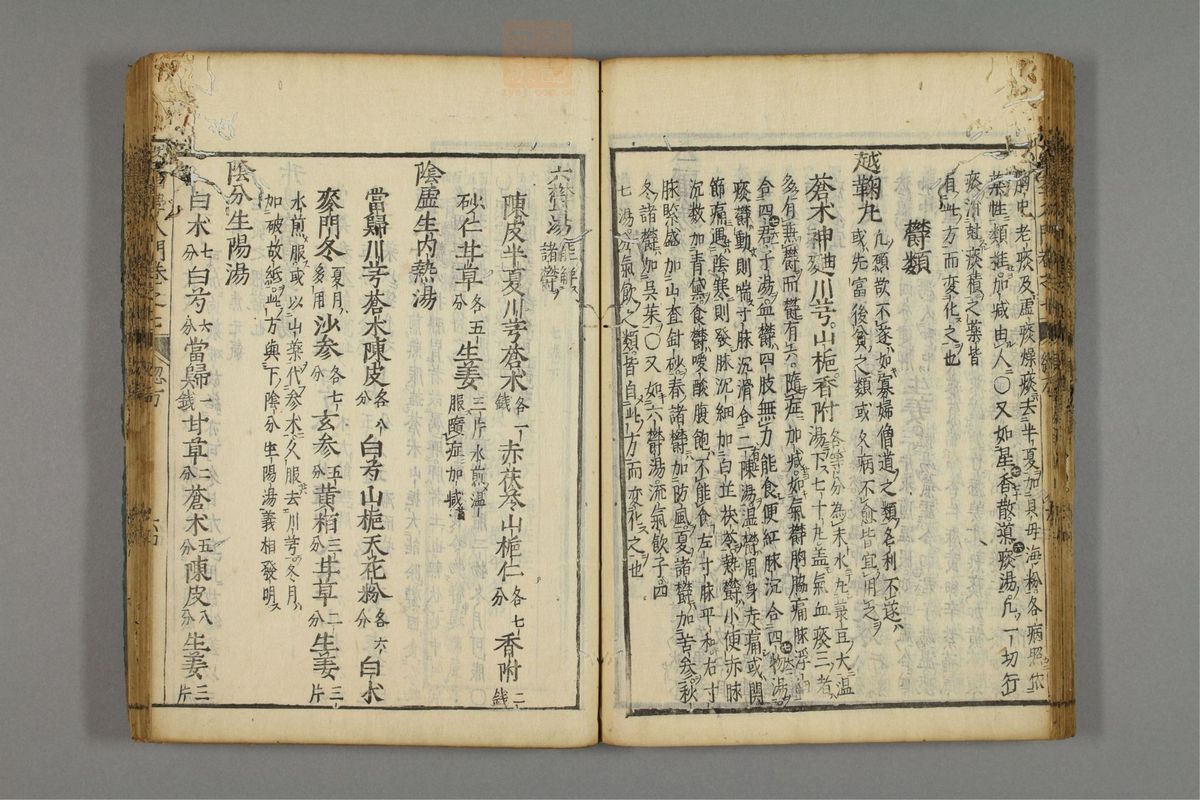 胸中老痰及虛痰燥痰去半夏加貝母海粉各病照依
藥性類推加減由人○又如星香散導痰湯凡一切行
痰消
痰積之藥皆
自此方而變化之也
鬱類
越鞠丸
凡積散不遂如寡婦僧道之類名利不遂
或先富後貧之類或久病不愈皆宜用之
蒼朮神曲川芎山梔香附各等分為末水丸菉豆大溫
湯下七十丸盖氣血痰三者
多有兼鬱而鬱有六隨症加減如氣鬱胸脇痛脉浮細
合四君子湯血鬱四肢無力能食便紅脉沉合四物湯
痰鬱動則喘寸脉沉滑合二陳湯濕鬱周身赤痛或關
節痛遇陰寒則發脉沉細加白芷茯苓熱鬱小便赤脉
沉數加青黛食鬱噯酸腹飽不能食左寸脉平和右寸
脉緊盛加山查針砂春諸鬱加防風夏諸鬱加苦參秋
冬諸鬱加吳茱○又如六鬱湯流氣飲子四
七湯分氣飲之類皆自此方而変化之也
六鬱湯能觧
諸鬱
陳皮半夏川芎蒼朮各一
錢赤茯苓山梔仁各七
分香附二
錢
砂仁甘草各五
分生姜三片水煎溫
服隨症加减
陰虛生内熱湯
當歸川芎蒼朮陳皮各八
分白芍山梔天花粉各六
分白朮
麥門冬夏月
多用沙參各七
分玄參五
分黄栢三
分甘草二
分生姜三
片
水煎服或以山藥代參朮久服去川芎冬月
加破故紙此方與下陰分生陽湯義相發明
陰分生陽湯
白朮七
分白芍六
分當歸一
錢甘草二
分蒼朮五
分陳皮八
分生姜三
片